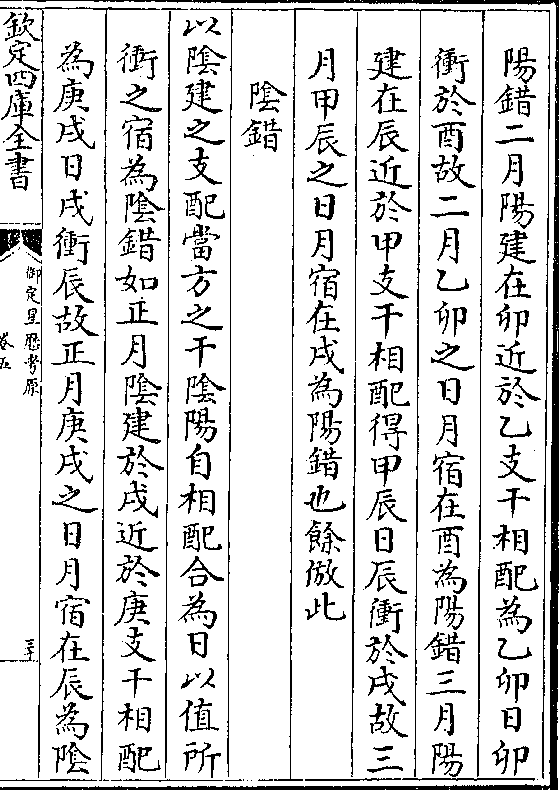 陽錯二月陽建在卯近於乙支干相配為乙卯日卯
衝於酉故二月乙卯之日月宿在酉為陽錯三月陽
建在辰近於甲支干相配得甲辰日辰衝於戌故三
月甲辰之日月宿在戌為陽錯也餘倣此
陰錯
以陰建之支配當方之干陰陽自相配合為日以值所
衝之宿為陰錯如正月陰建於戌近於庚支干相配
為庚戌日戌衝辰故正月庚戌之日月宿在辰為陰
欽定四庫全書
御定星歴考原
卷五
三十